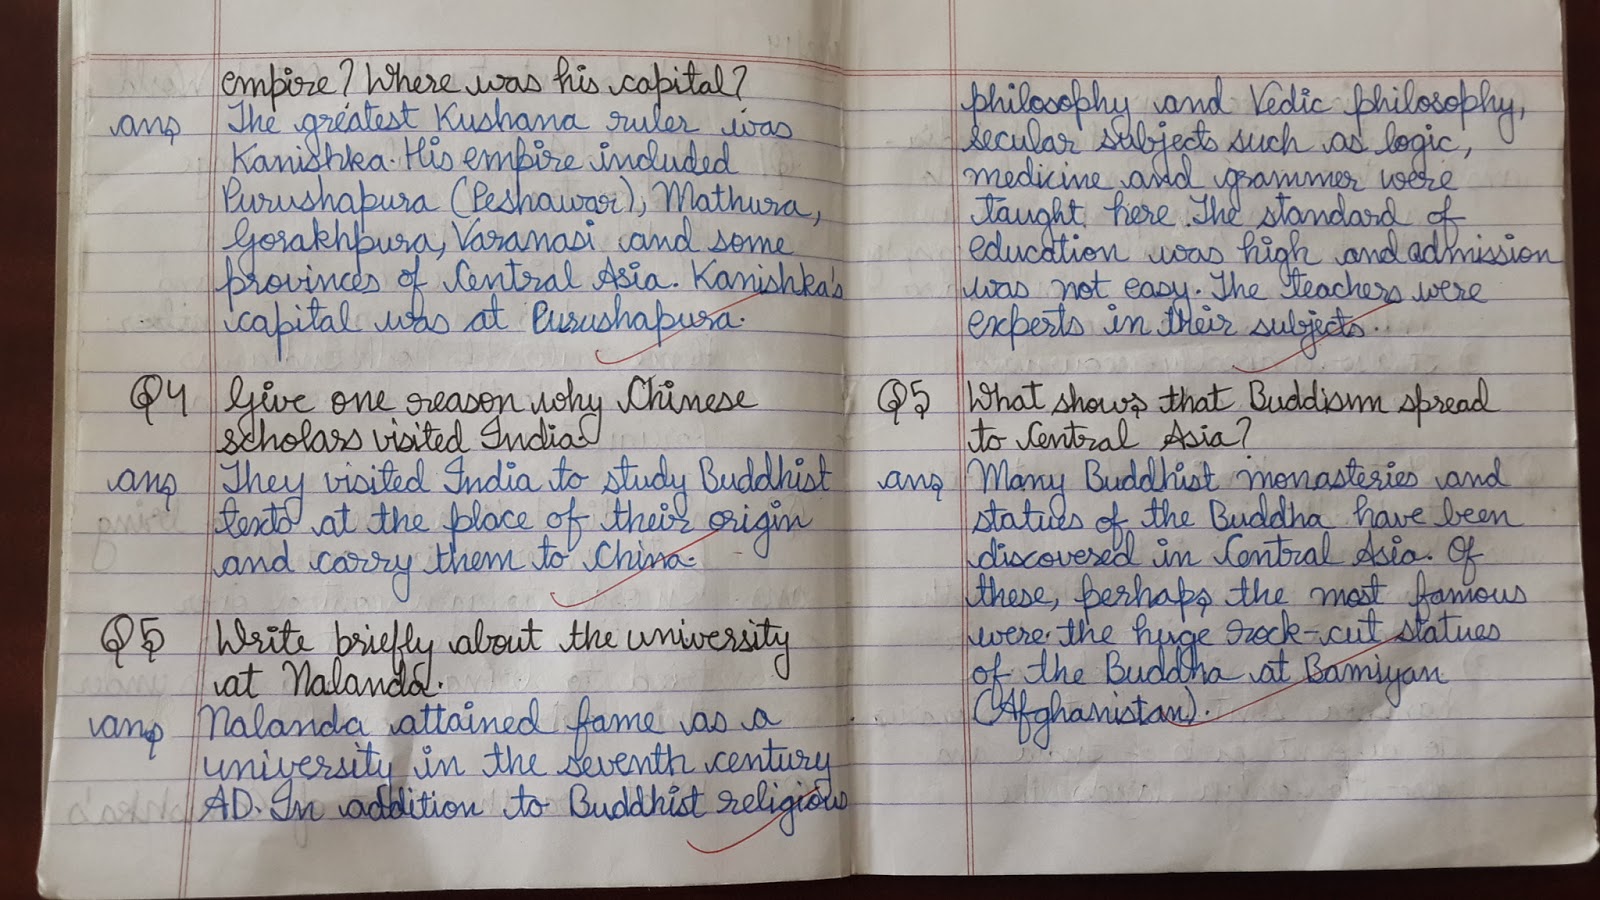 empire? Where was his capital?
ans The greatest Kushana ruler was
Kanishka. His empire included
Purushapura (Peshawar), Mathura,
Gorakhpura, Varanasi and some
provinces of Central Asia. Kanishka's
capital was at Purushapura.
Q4 Give one reason why Chinese
scholars visited India.
ans They visited India to study Buddhist
texts at the place of their origin
and carry them to China.
Q5 Write briefly about the university
at Nalanda.
ans Nalanda attained fame as a
university in the seventh century
AD. In addition to Buddhist religious
philosophy and Vedic philosophy,
secular subjects such as logic,
medicine and grammer were
taught here. The standard of
education was high and admission
was not easy. The teachers were
experts in their subjects.
Q5 What shows that Buddism spread
to Central Asia?
ans Many Buddhist monasteries and
statues of the Buddha have been
discovered in Central Asia. Of
these, perhaps the most famous
were the huge rock-cut statues
of the Buddha at Bamiyan
(Afghanistan).